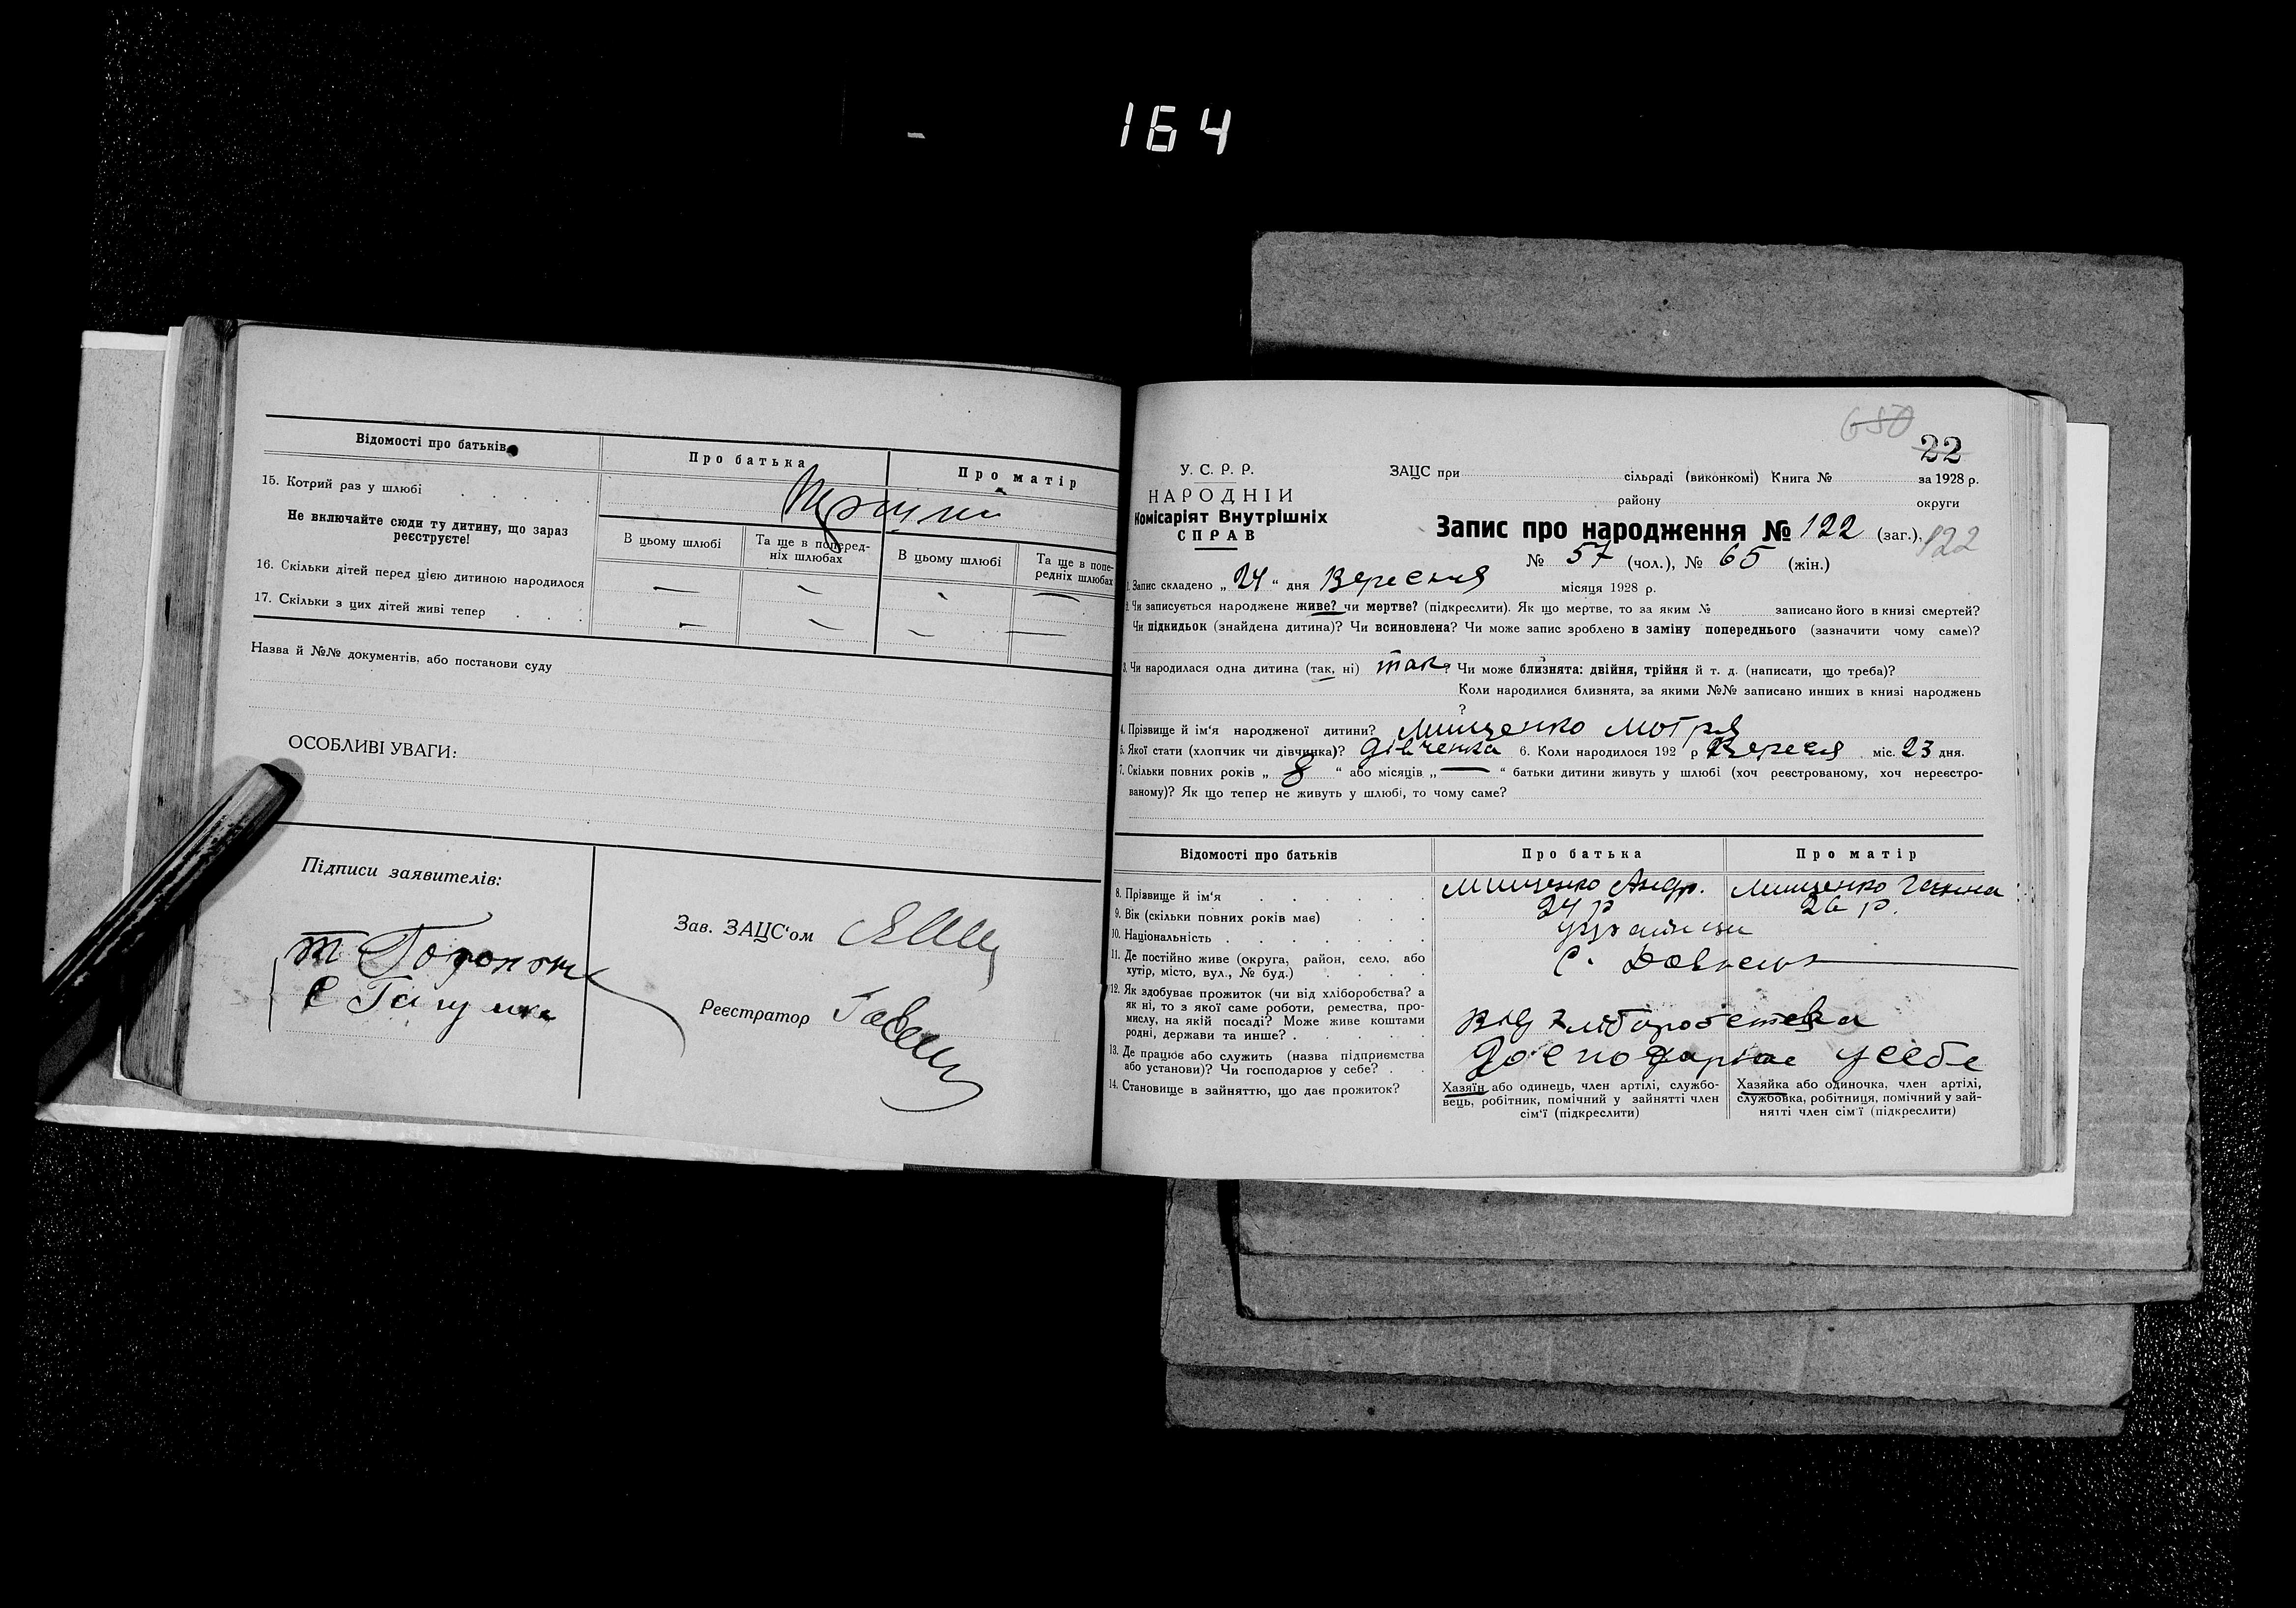 164
Відомості про батьків
Про батька
Про матір
15. Котрий раз у шлюбі
Не включайте сюди ту дитину, що зараз
реєструєте!
В цьому шлюбі
Та ще в поперед-
ніх шлюбах
В цьому шлюбі
Та ще в попе-
редніх шлюбах
16. Скільки дітей перед цією дитиною народилося
— — — —
17. Скільки з цих дітей живі тепер
— — — —
Назва й №№ документів, або постанови суду
ОСОБЛИВІ УВАГИ:
Підписи заявителів:
Зав. ЗАЦС‘ом
Реєстратор
650
22
У. С. Р. Р.
НАРОДНІЙ
Комісаріят Внутрішніх
СПРАВ
ЗАЦС при сільраді (виконкомі) Книга № за 1928 р.
району округи
Запис про народження № 122 (заг.), 122
№ 57 (чол.), № 65 (жін.)
1. Запис складено „ 24 “ дня Вересня місяця 1928 р.
2. Чи записується народжене живе? чи мертве? (підкреслити). Як що мертве, то за яким № записано його в книзі смертей?
Чи підкидьок (знайдена дитина)? Чи всиновлена? Чи може запис зроблено в заміну попереднього (зазначити чому саме)?
3. Чи народилася одна дитина (так, ні) так? Чи може близнята: двійня, трійня й т. д. (написати, що треба)?
Коли народилися близнята, за якими №№ записано инших в книзі народжень
?
4. Прізвище й ім‘я народженої дитини? Мищенко Мотря
5. Якої стати (хлопчик чи дівчинка)? дівченка 6. Коли народилося 192 р Вересня міс. 23 дня.
7. Скільки повних років „ 8 “ або місяців „ — “ батьки дитини живуть у шлюбі (хоч реєстрованому, хоч нереєстро-
ваному)? Як що тепер не живуть у шлюбі, то чому саме?
Відомості про батьків
Про батька
Про матір
8. Прізвище й ім‘я
Мищенко Андр.
Мищенко Ганна
9. Вік (скільки повних років має)
24 р
26 р.
10. Національність
українци
11. Де постійно живе (округа, район, село, або
хутір, місто, вул., № буд.)
с.
12. Як здобуває прожиток (чи від хліборобства? а
як ні, то з якої саме роботи, ремества, про-
мислу, на якій посаді? Може живе коштами
родні, держави та инше?
від хліборобства
13. Де працює або служить (назва підприємства
або установи)? Чи господарює у себе?
Господарює у себе
14. Становище в зайняттю, що дає прожиток?
Хазяїн або одинець, член артілі, службо-
вець, робітник, помічний у зайнятті член
сім‘ї (підкреслити)
Хазяйка або одиночка, член артілі,
службовка, робітниця, помічний у зай-
нятті член сім‘ї (підкреслити)